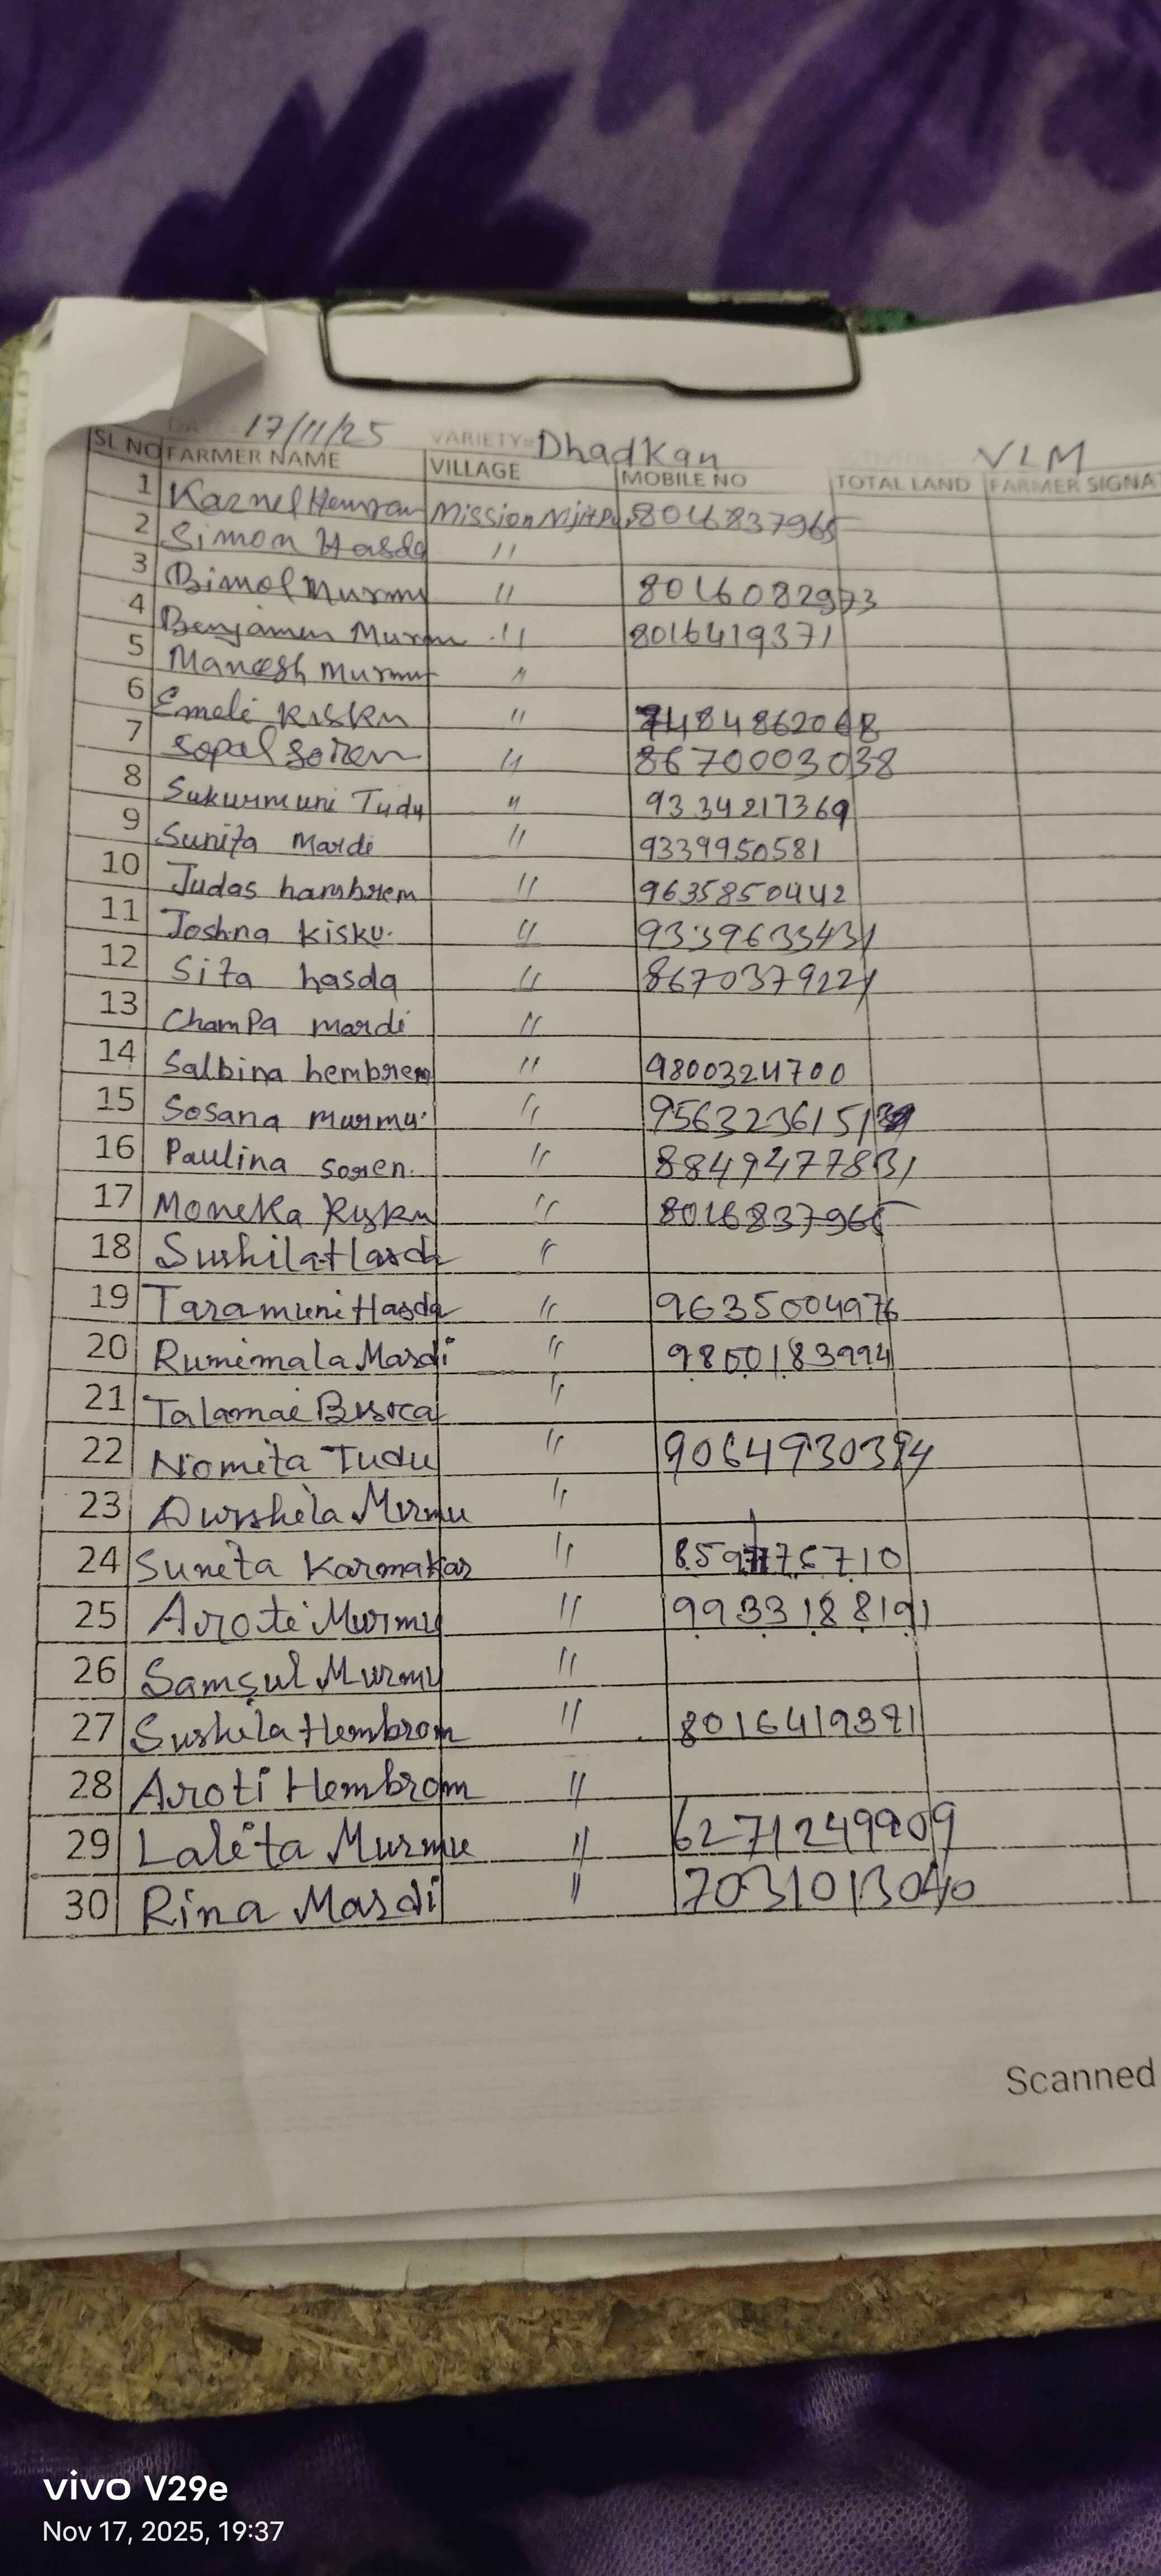 DA 17/11/25 VARIETY= Dhadkan VLM
SL NO FARMER NAME VILLAGE MOBILE NO TOTAL LAND FARMER SIGNA
1 Karnel Hemron Mission 8016837965
2 Simon Hasda "
3 Bimol Murmu " 8016082973
4 Benjamen Murmu " 8016419371
5 Manoesh Murmu "
6 Emeli Kisku " 7484862068
7 Sopal Soren " 8670003038
8 Sukurmuni Tudu " 9334217369
9 Sunita Mardi " 9339950581
10 Judas hambrem " 9635850442
11 Joshna kisku. " 9339633431
12 Sita hasda " 8670379221
13 Champa mardi "
14 Salbina hembrem " 9800324700
15 Sosana murmu. " 9563236151
16 Paulina soren. " 8849477831
17 Moneka Kisku " 8016837965
18 Sushila Hasda "
19 Taramuni Hasda " 9635004976
20 Rumimala Mardi " 9800183994
21 Talamai "
22 Nomita Tudu " 9064930394
23 Murmu "
24 Suneta Karmakar " 8597776710
25 Aroti Murmu " 9933188191
26 Samsul Murmu "
27 Sushila Hembrom " 8016419381
28 Aroti Hembrom "
29 Laleta Murmu " 6271249909
30 Rina Mardi " 7031013040
Scanned
vivo V29e
Nov 17, 2025, 19:37